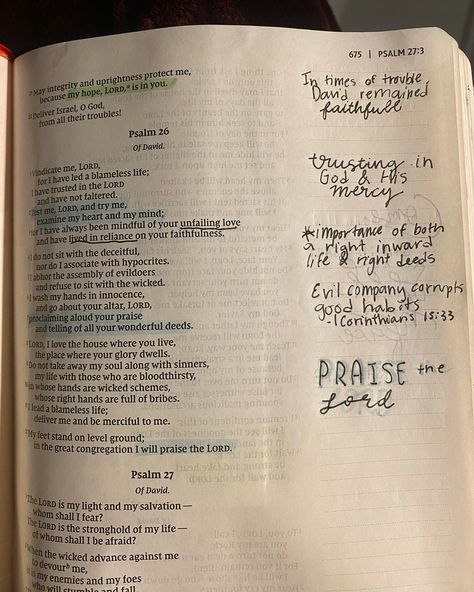 675 | PSALM 27:3
21 May integrity and uprightness protect me,
because my hope, LORD,a is in you.
22 Deliver Israel, O God,
from all their troubles!
Psalm 26
Of David.
1 Vindicate me, LORD,
for I have led a blameless life;
I have trusted in the LORD
and have not faltered.
2 Test me, LORD, and try me,
examine my heart and my mind;
3 for I have always been mindful of your unfailing love
and have lived in reliance on your faithfulness.
4 I do not sit with the deceitful,
nor do I associate with hypocrites.
5 I abhor the assembly of evildoers
and refuse to sit with the wicked.
6 I wash my hands in innocence,
and go about your altar, LORD,
7 proclaiming aloud your praise
and telling of all your wonderful deeds.
8 LORD, I love the house where you live,
the place where your glory dwells.
9 Do not take away my soul along with sinners,
my life with those who are bloodthirsty,
10 in whose hands are wicked schemes,
whose right hands are full of bribes.
11 I lead a blameless life;
deliver me and be merciful to me.
12 My feet stand on level ground;
in the great congregation I will praise the LORD.
Psalm 27
Of David.
1 The LORD is my light and my salvation—
whom shall I fear?
The LORD is the stronghold of my life—
of whom shall I be afraid?
2 When the wicked advance against me
to devourb me,
it is my enemies and my foes
who will stumble and fall.
In times of trouble,
David remained
faithfull
trusting in
God & His
mercy
*importance of both
a right inward
life & right deeds
Evil company corrupts
good habits
-1 Corinthians 15:33
PRAISE the
Lord